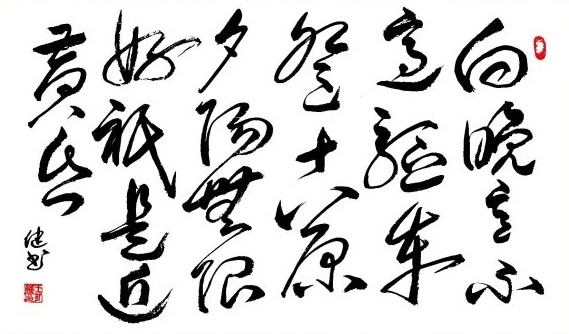 向晚意不
適驅車
登古原
夕陽無限
好祇是近
黄昏